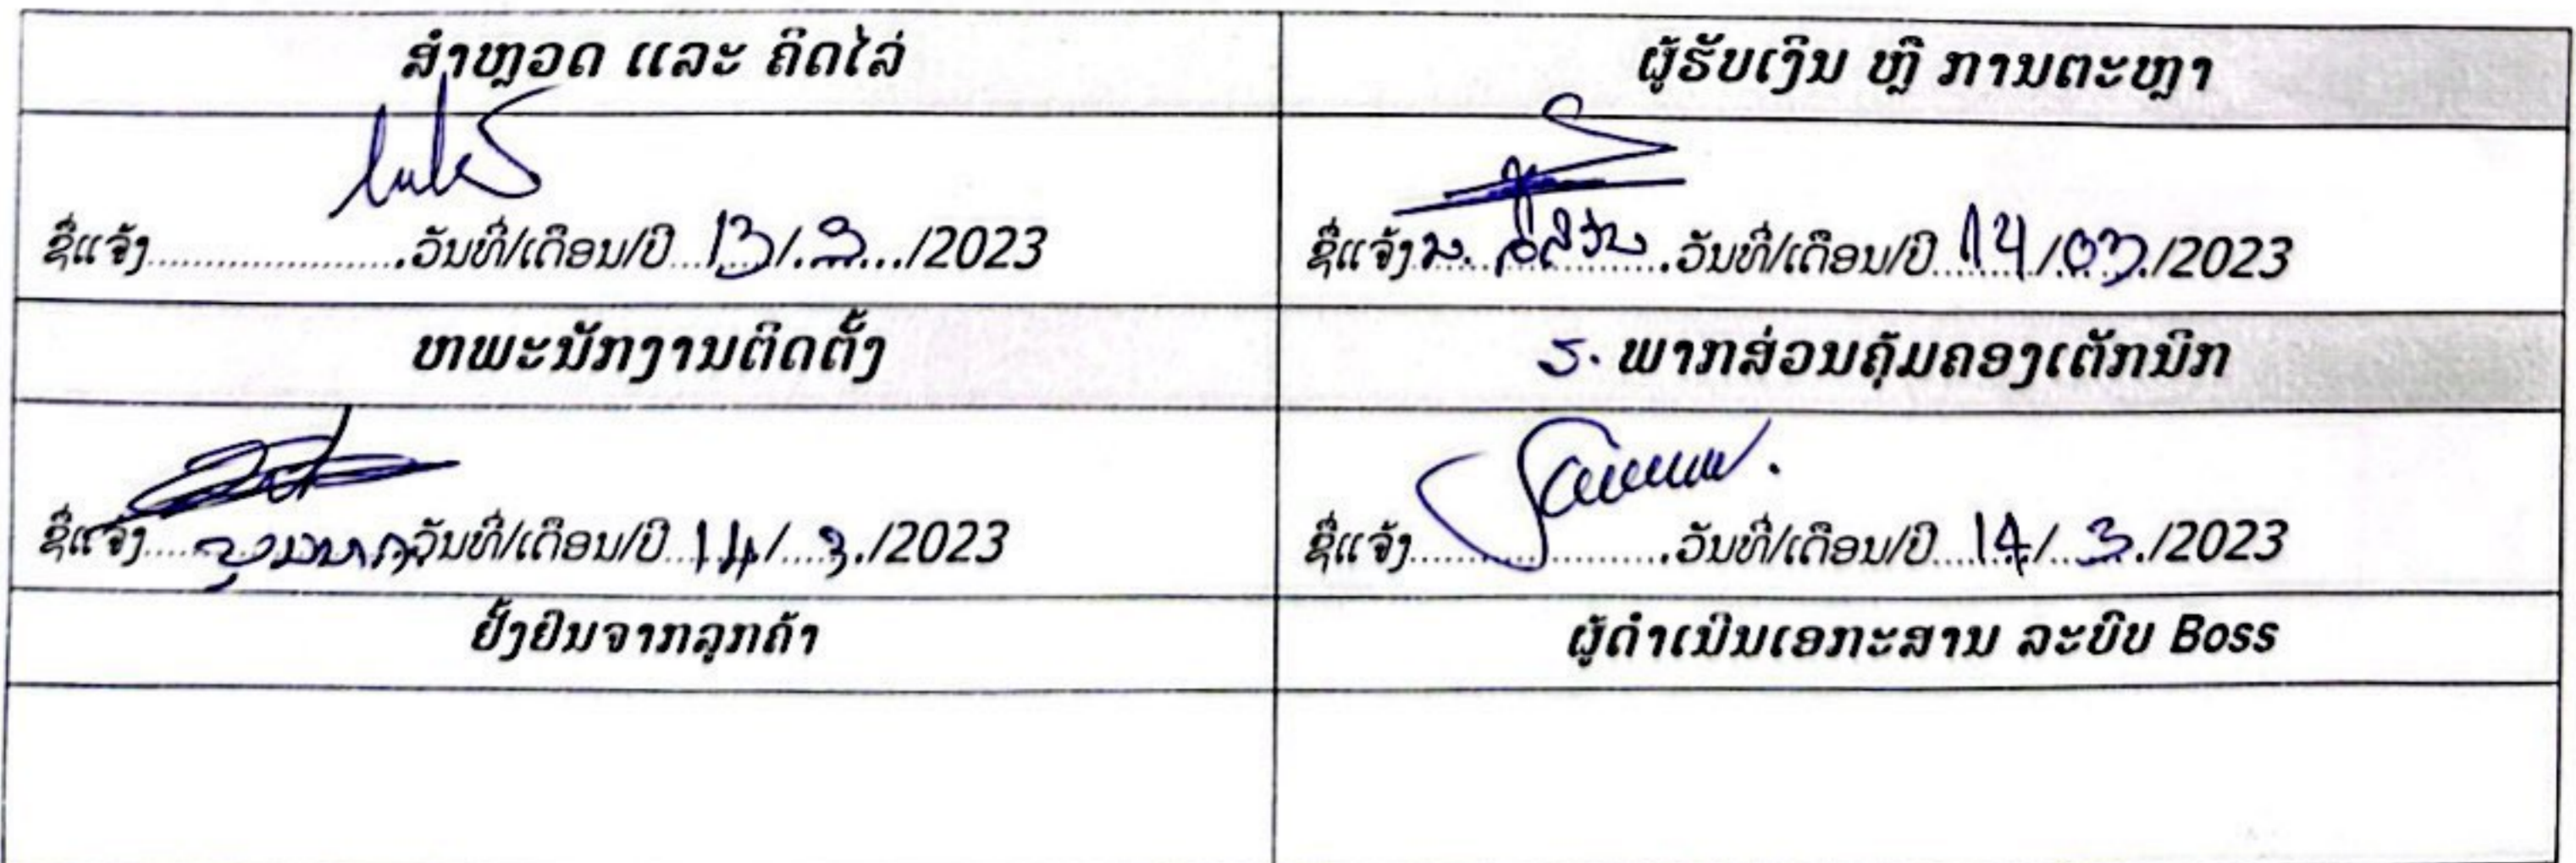 ສຳຫຼວດ ແລະ ຄິດໄລ່
ຜູ້ຮັບເງິນ ຫຼື ການຕະຫຼາ
ຊື່ແຈ້ງ.....................ວັນທີ່/ເດືອນ/ປີ...13/.3.../2023
ຊື່ແຈ້ງ ນ. .ວັນທີ່/ເດືອນ/ປີ 14/.03./2023
ຫພະນັກງານຕິດຕັ້ງ
ຮ. ພາກສ່ວນຄຸ້ມຄອງເຕັກນິກ
ຊື່ແຈ້ງ.... ວັນທີ່/ເດືອນ/ປີ..14/...3./2023
ຊື່ແຈ້ງ.....................ວັນທີ່/ເດືອນ/ປີ....14/..3./2023
ຢັ້ງຢືນຈາກລູກຄ້າ
ຜູ້ດຳເນີນເອກະສານ ລະບົບ Boss